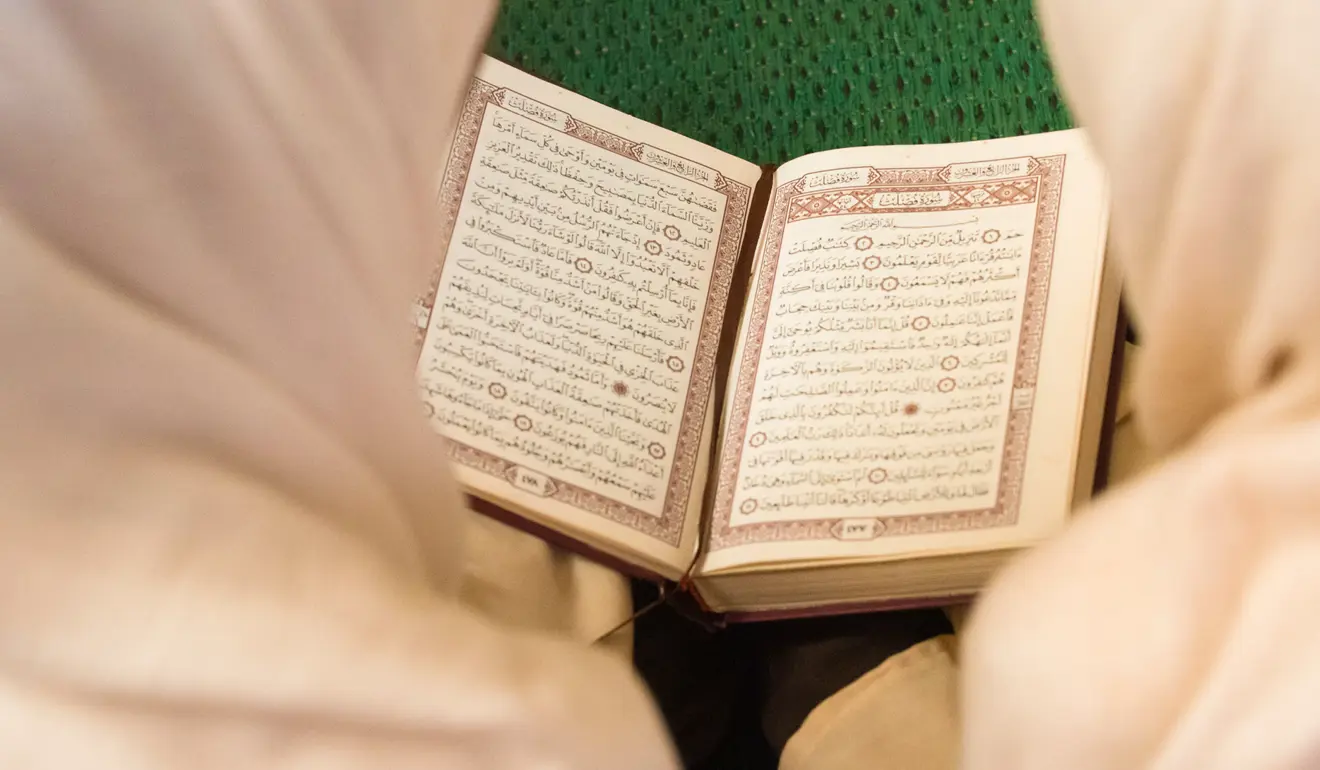 سُورَةُ فُصِّلَتْ الجُزْءُ الرَّابِعُ وَالعِشْرُونَ
سُورَةُ فُصِّلَتْ
بِسْمِ ٱللَّهِ ٱلرَّحْمَٰنِ ٱلرَّحِيمِ
حمٓ ١ تَنزِيلٌ مِّنَ ٱلرَّحْمَٰنِ ٱلرَّحِيمِ ٢ كِتَٰبٌ فُصِّلَتْ
ءَايَٰتُهُۥ قُرْءَانًا عَرَبِيًّا لِّقَوْمٍ يَعْلَمُونَ ٣ بَشِيرًا وَنَذِيرًا فَأَعْرَضَ
أَكْثَرُهُمْ فَهُمْ لَا يَسْمَعُونَ ٤ وَقَالُوا۟ قُلُوبُنَا فِىٓ أَكِنَّةٍ
مِّمَّا تَدْعُونَآ إِلَيْهِ وَفِىٓ ءَاذَانِنَا وَقْرٌ وَمِنۢ بَيْنِنَا وَبَيْنِكَ حِجَابٌ
فَٱعْمَلْ إِنَّنَا عَٰمِلُونَ ٥ قُلْ إِنَّمَآ أَنَا۠ بَشَرٌ مِّثْلُكُمْ يُوحَىٰٓ إِلَىَّ
أَنَّمَآ إِلَٰهُكُمْ إِلَٰهٌ وَٰحِدٌ فَٱسْتَقِيمُوٓا۟ إِلَيْهِ وَٱسْتَغْفِرُوهُ وَوَيْلٌ
لِّلْمُشْرِكِينَ ٦ ٱلَّذِينَ لَا يُؤْتُونَ ٱلزَّكَوٰةَ وَهُم بِٱلْءَاخِرَةِ
هُمْ كَٰفِرُونَ ٧ إِنَّ ٱلَّذِينَ ءَامَنُوا۟ وَعَمِلُوا۟ ٱلصَّٰلِحَٰتِ لَهُمْ
أَجْرٌ غَيْرُ مَمْنُونٍ ٨ ۞ قُلْ أَئِنَّكُمْ لَتَكْفُرُونَ بِٱلَّذِى خَلَقَ
ٱلْأَرْضَ فِى يَوْمَيْنِ وَتَجْعَلُونَ لَهُۥٓ أَندَادًا ذَٰلِكَ رَبُّ ٱلْعَٰلَمِينَ ٩
وَجَعَلَ فِيهَا رَوَٰسِىَ مِن فَوْقِهَا وَبَٰرَكَ فِيهَا وَقَدَّرَ فِيهَآ أَقْوَٰتَهَا فِىٓ
أَرْبَعَةِ أَيَّامٍ سَوَآءً لِّلسَّآئِلِينَ ١٠ ثُمَّ ٱسْتَوَىٰٓ إِلَى ٱلسَّمَآءِ وَهِىَ دُخَانٌ
فَقَالَ لَهَا وَلِلْأَرْضِ ٱئْتِيَا طَوْعًا أَوْ كَرْهًا قَالَتَآ أَتَيْنَا طَآئِعِينَ ١١
٤٧٧
سُورَةُ فُصِّلَتْ الجُزْءُ الرَّابِعُ وَالعِشْرُونَ
فَقَضَىٰهُنَّ سَبْعَ سَمَٰوَاتٍ فِى يَوْمَيْنِ وَأَوْحَىٰ فِى كُلِّ سَمَآءٍ أَمْرَهَا
وَزَيَّنَّا ٱلسَّمَآءَ ٱلدُّنْيَا بِمَصَٰبِيحَ وَحِفْظًا ذَٰلِكَ تَقْدِيرُ ٱلْعَزِيزِ
ٱلْعَلِيمِ ١٢ فَإِنْ أَعْرَضُوا۟ فَقُلْ أَنذَرْتُكُمْ صَٰعِقَةً مِّثْلَ صَٰعِقَةِ
عَادٍ وَثَمُودَ ١٣ إِذْ جَآءَتْهُمُ ٱلرُّسُلُ مِنۢ بَيْنِ أَيْدِيهِمْ وَمِنْ
خَلْفِهِمْ أَلَّا تَعْبُدُوٓا۟ إِلَّا ٱللَّهَ قَالُوا۟ لَوْ شَآءَ رَبُّنَا لَأَنزَلَ مَلَٰٓئِكَةً
فَإِنَّا بِمَآ أُرْسِلْتُم بِهِۦ كَٰفِرُونَ ١٤ فَأَمَّا عَادٌ فَٱسْتَكْبَرُوا۟ فِى
ٱلْأَرْضِ بِغَيْرِ ٱلْحَقِّ وَقَالُوا۟ مَنْ أَشَدُّ مِنَّا قُوَّةً أَوَلَمْ يَرَوْا۟ أَنَّ ٱللَّهَ
ٱلَّذِى خَلَقَهُمْ هُوَ أَشَدُّ مِنْهُمْ قُوَّةً وَكَانُوا۟ بِـَٔايَٰتِنَا يَجْحَدُونَ
١٥ فَأَرْسَلْنَا عَلَيْهِمْ رِيحًا صَرْصَرًا فِىٓ أَيَّامٍ نَّحِسَاتٍ لِّنُذِيقَهُمْ
عَذَابَ ٱلْخِزْىِ فِى ٱلْحَيَوٰةِ ٱلدُّنْيَا وَلَعَذَابُ ٱلْءَاخِرَةِ أَخْزَىٰ وَهُمْ
لَا يُنصَرُونَ ١٦ وَأَمَّا ثَمُودُ فَهَدَيْنَٰهُمْ فَٱسْتَحَبُّوا۟ ٱلْعَمَىٰ عَلَى
ٱلْهُدَىٰ فَأَخَذَتْهُمْ صَٰعِقَةُ ٱلْعَذَابِ ٱلْهُونِ بِمَا كَانُوا۟ يَكْسِبُونَ
١٧ وَنَجَّيْنَا ٱلَّذِينَ ءَامَنُوا۟ وَكَانُوا۟ يَتَّقُونَ ١٨ وَيَوْمَ يُحْشَرُ
أَعْدَآءُ ٱللَّهِ إِلَى ٱلنَّارِ فَهُمْ يُوزَعُونَ ١٩ حَتَّىٰٓ إِذَا مَا جَآءُوهَا شَهِدَ
عَلَيْهِمْ سَمْعُهُمْ وَأَبْصَٰرُهُمْ وَجُلُودُهُم بِمَا كَانُوا۟ يَعْمَلُونَ ٢٠
٤٧٨